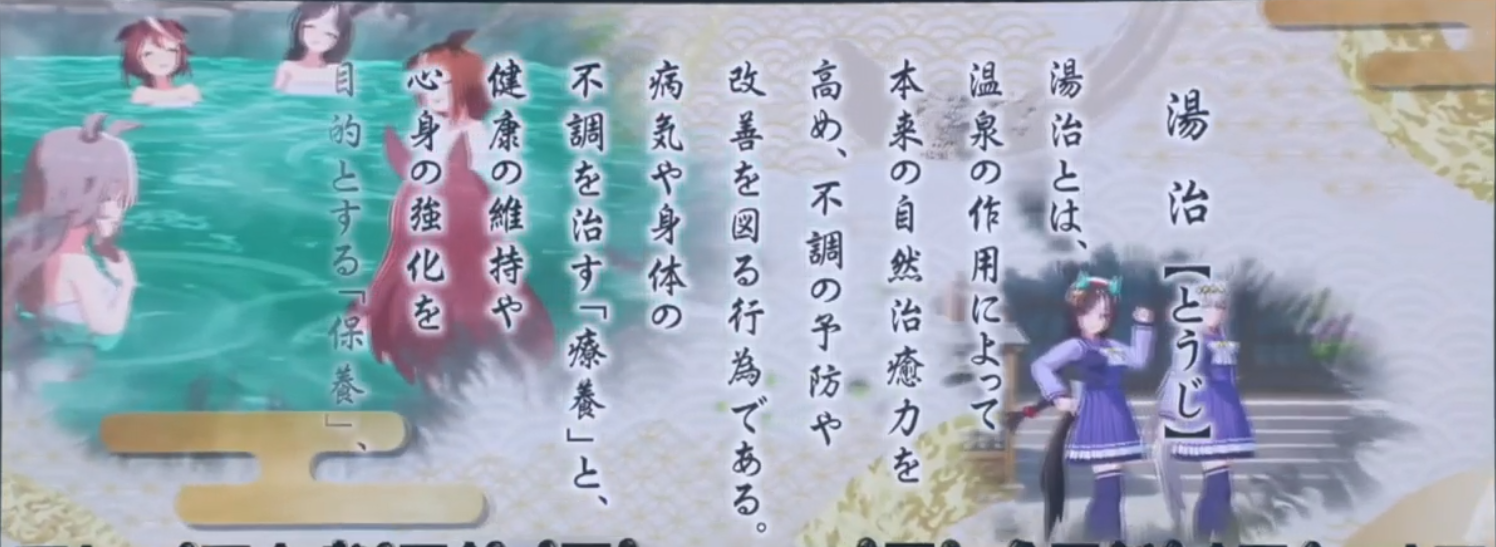 湯治【とうじ】
湯治とは、
温泉の作用によって
本来の自然治癒力を
高め、不調の予防や
改善を図る行為である。
病気や身体の
不調を治す「療養」と、
健康の維持や
心身の強化を
目的とする「保養」、